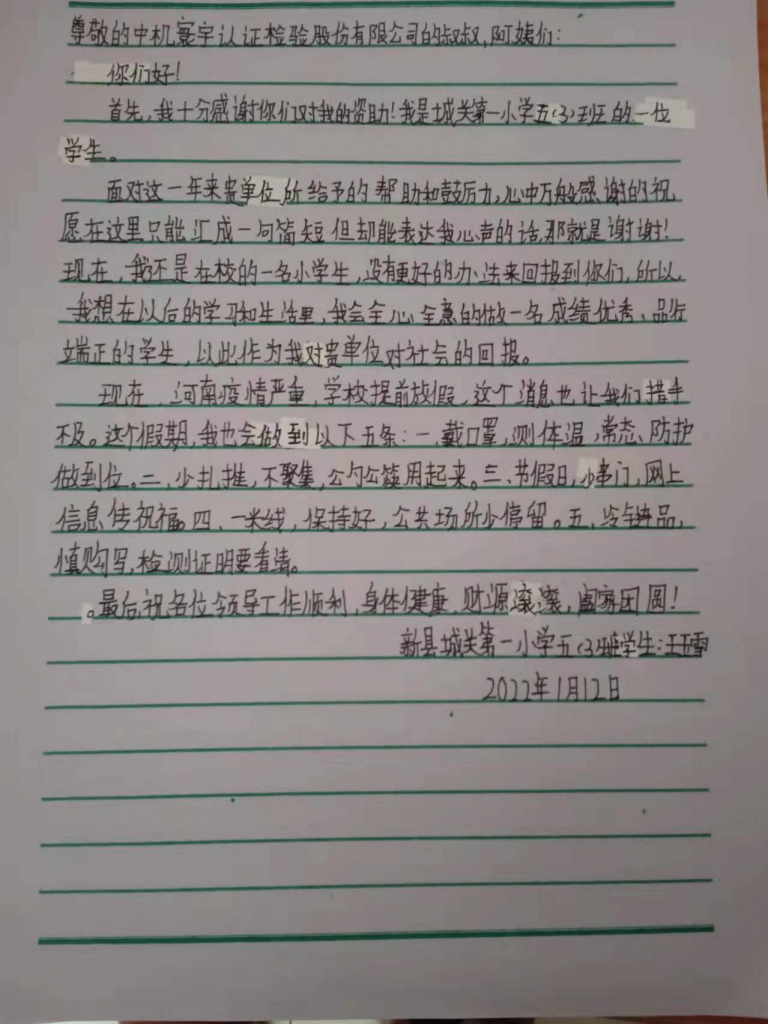 尊敬的中机寰宇认证检验股份有限公司的叔叔,阿姨们:
你们好!
首先,我十分感谢你们对我的资助!我是城关第一小学五(3)班的一位
学生。
面对这一年来贵单位所给予的帮助和鼓厉力,心中万般感谢的祝
愿在这里只能汇成一句简短但却能表达我心声的话,那就是谢谢!
现在,我还是在校的一名小学生,没有更好的办法来回报到你们,所以,
我想在以后的学习和生活里,我会全心全意的做一名成绩优秀、品行
端正的学生,以此作为我对贵单位对社会的回报。
现在,河南疫情严重,学校提前放假,这个消息也让我们措手
不及。这个假期,我也会做到以下五条:一.戴口罩,测体温,常态、防护
做到位。二、少扎推,不聚集,公勺公筷用起来。三、节假日,少串门,网上
信息传祝福。四、一米线,保持好,公共场所少停留。五、冷链品,
慎购写,检测证明要看清。
。最后,祝各位领导工作顺利,身体健康,财源滚滚,阖家团圆!
新县城关第一小学五(3)班学生:王玉雪
2022年1月12日